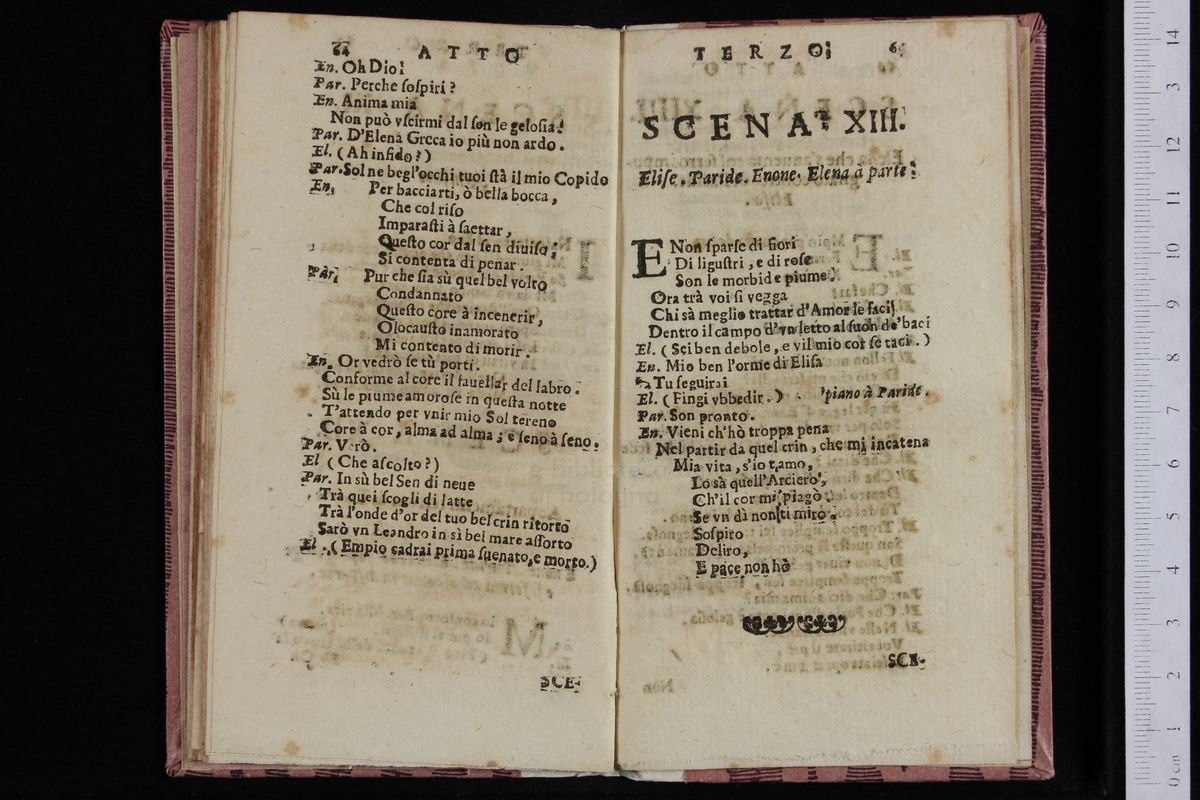 64 ATTO
En. Oh Dio!
Par. Perche ſoſpiri?
En. Anima mia
Non può vſcirmi dal ſen le geloſia!
Par. D'Elena Greca io più non ardo.
El. (Ah infido?)
Par. Sol ne begl'occhi tuoi ſtà il mio Copido
En. Per bacciarti, ò bella bocca,
Che col riſo
Imparaſti à ſaettar,
Queſto cor dal ſen diuiſo;
Si contenta di penar.
Par. Pur che ſia sù quel bel volto
Condannato
Queſto core à incenerir,
Olocauſto inamorato
Mi contento di morir.
En. Or vedrò ſe tù porti.
Conforme al core il fauellar del labro.
Sù le piume amoroſe in queſta notte
T'attendo per vnir mio Sol tereno
Core à cor, alma ad alma; e ſeno à ſeno.
Par. Verò.
El (Che aſcolto?)
Par. In sù bel Sen di neue
Trà quei ſcogli di latte
Trà l'onde d'or del tuo bel crin ritorto
Sarò vn Leandro in sì bel mare aſſorto
El. (Empio cadrai prima ſuenato, e morto.)
SCE-
TERZO. 65
SCENA XIII.
Eliſe. Paride. Enone. Elena à parte.
E Non ſparſe di fiori
Di liguſtri, e di roſe
Son le morbide piume.
Ora trà voi ſi vegga
Chi sà meglio trattar d'Amor le faci
Dentro il campo d'vn letto al ſuon de' baci
El. (Sei ben debole, e vil mio cor ſe taci.)
En. Mio ben l'orme di Eliſa
Tu ſeguirai
El. (Fingi vbbedir.) piano à Paride.
Par. Son pronto.
En. Vieni ch'hò troppa pena
Nel partir da quel crin, che mi incatena
Mia vita, s'io t'amo,
Lo sà quell'Arciero,
Ch'il cor mi piagò.
Se vn dì non ti miro
Soſpiro
Deliro,
E pace non hò
SCE-